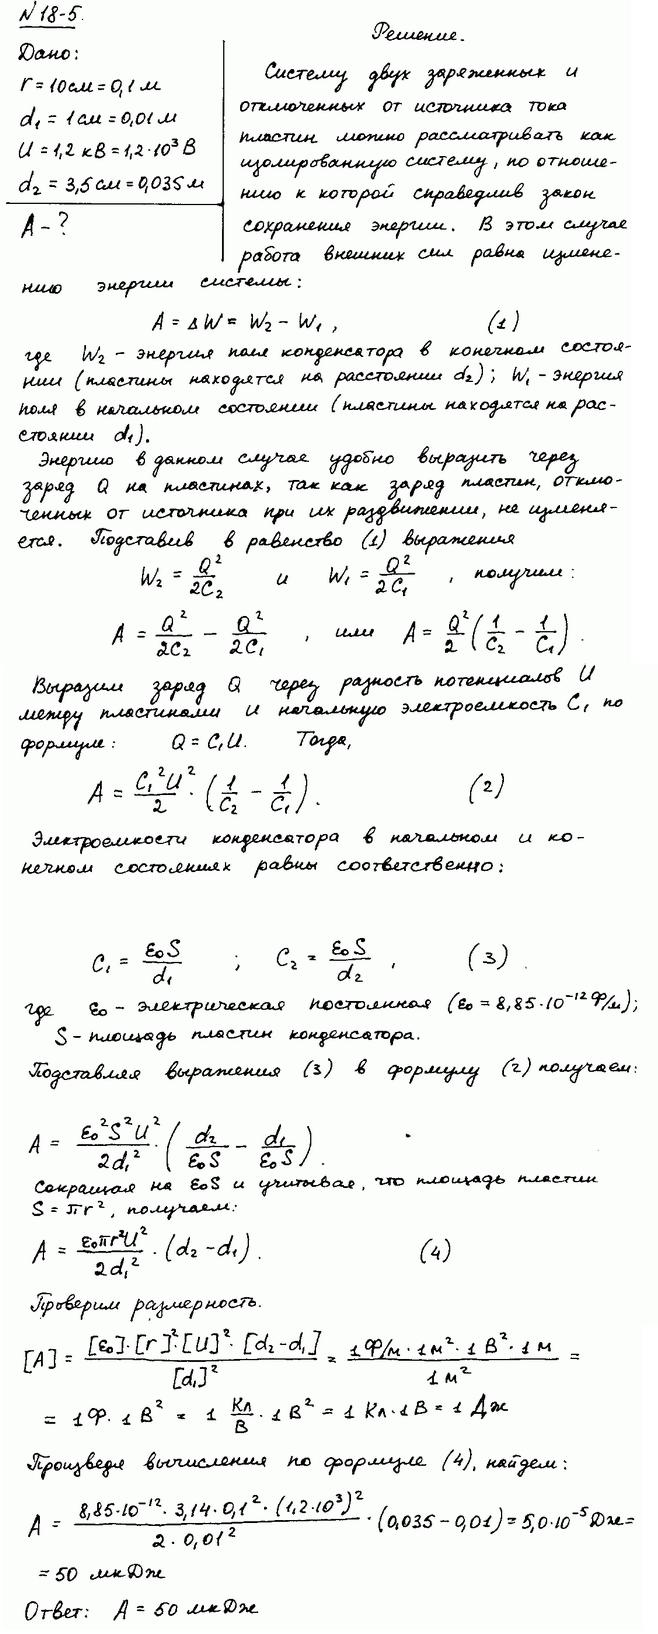 N 18-5.
Дано:
r = 10 см = 0,1 м
d₁ = 1 см = 0,01 м
U = 1,2 кВ = 1,2·10³ В
d₂ = 3,5 см = 0,035 м
A - ?
Решение.
Систему двух заряженных и
отключенных от источника тока
пластин можно рассматривать как
изолированную систему, по отноше-
нию к которой справедлив закон
сохранения энергии. В этом случае
работа внешних сил равна измене-
нию энергии системы:
A = ΔW = W₂ - W₁ , (1)
где W₂ - энергия поля конденсатора в конечном состоя-
нии (пластины находятся на расстоянии d₂); W₁ - энергия
поля в начальном состоянии (пластины находятся на рас-
стоянии d₁).
Энергию в данном случае удобно выразить через
заряд Q на пластинах, так как заряд пластин, отклю-
ченных от источника при их раздвижении, не изменя-
ется. Подставив в равенство (1) выражения
W₂ = Q²/2C₂ и W₁ = Q²/2C₁ , получим:
A = Q²/2C₂ - Q²/2C₁ , или A = Q²/2 (1/C₂ - 1/C₁) .
Выразим заряд Q через разность потенциалов U
между пластинами и начальную электроемкость C₁ по
формуле: Q = C₁U. Тогда,
A = C₁²U²/2 · (1/C₂ - 1/C₁) . (2)
Электроемкости конденсатора в начальном и ко-
нечном состояниях равны соответственно:
C₁ = ε₀S/d₁ ; C₂ = ε₀S/d₂ , (3) .
где ε₀ - электрическая постоянная (ε₀ = 8,85·10⁻¹² Ф/м);
S - площадь пластин конденсатора.
Подставляя выражения (3) в формулу (2) получаем:
A = ε₀²S²U²/2d₁² · (d₂/ε₀S - d₁/ε₀S) .
Сокращая на ε₀S и учитывая, что площадь пластин
S = πr², получаем:
A = ε₀πr²U²/2d₁² · (d₂ - d₁) . (4)
Проверим размерность.
[A] = [ε₀]·[r]²·[U]²·[d₂-d₁]/[d₁]² = 1 Ф/м · 1 м² · 1 В² · 1 м/1 м² =
= 1 Ф · 1 В² = 1 Кл/В · 1 В² = 1 Кл · 1 В = 1 Дж
Произведя вычисления по формуле (4), найдем:
A = 8,85·10⁻¹² · 3,14 · 0,1² · (1,2·10³)²/2 · 0,01² · (0,035 - 0,01) = 5,0·10⁻⁵ Дж =
= 50 мкДж
Ответ: A = 50 мкДж